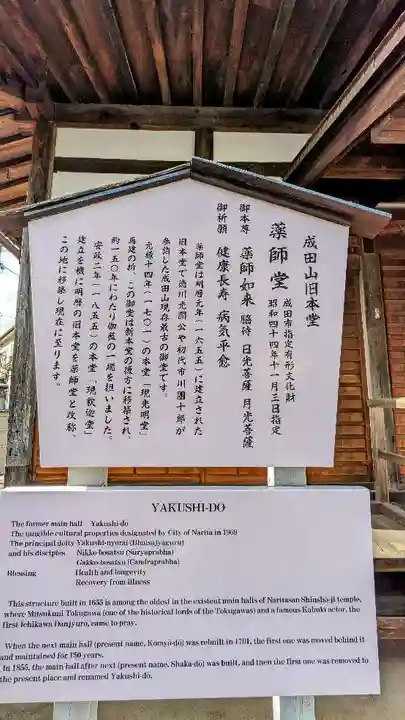 成田山旧本堂
薬師堂
成田市指定有形文化財
昭和四十四年十一月三日指定
御本尊 薬師如来 脇待 日光菩薩 月光菩薩
御祈願 健康長寿 病気平愈
薬師堂は明暦元年(一六五五)に建立された
旧本堂で徳川光圀公や初代市川團十郎が
参詣した成田山現存最古の御堂です。
元禄十四年(一七〇一)の本堂「現光明堂」
再建の折、この御堂は新本堂の後方に移築され、
約一五〇年にわたり伽藍の一端を担いました。
安政二年(一八五五)の本堂「現釈迦堂」
建立を機に明暦の旧本堂を薬師堂と改称、
この地に移築し現在に至ります。
YAKUSHI-DO
The former main hall Yakushi-do
The tangible cultural properties designated by City of Narita in 1969
The principal deity Yakushi-nyorai (Bhaisajyaguru)
and his disciples Nikko-bosatsu (Suryaprabha)
Gakko-bosatsu (Candraprabha)
Blessing Health and longevity
Recovery from illness
This structure built in 1655 is among the oldest in the existent main halls of Naritasan Shinsho-ji temple,
where Mitsukuni Tokugawa (one of the historical lords of the Tokugawas) and a famous Kabuki actor, the
first Ichikawa Danjuro, came to pray.
When the next main hall (present name, Komyō-dō) was rebuilt in 1701, the first one was moved behind it
and maintained for 150 years.
In 1855, the main hall after next (present name, Shaka-dō) was built, and then the first one was removed to
the present place and renamed Yakushi-dō.